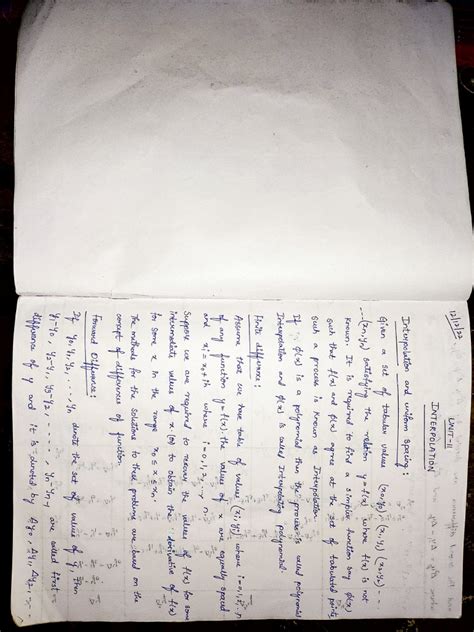 12/2/22
UNIT-II
INTERPOLATION
Interpolation and uniform spacing:
Given a set of tabular values (x0,y0) (x1,y1) (x2,y2) ---
---(xn,yn) satisfying the relation y=f(x) where f(x) is not
known. It is required to find a simpler function say ϕ(x)
such that f(x) and ϕ(x) agree at the set of tabulated points
such a process is known as Interpolation.
If ϕ(x) is a polynomial then the process is called polynomial
Interpolation and ϕ(x) is called Interpolating polynomial.
Finite difference:
Assume that we have table of values (xi,yi) where i=0,1,2,..n
of any function y=f(x). the values of x are equally spaced
and xi=x0+ih where i=0,1,2,--- n.
Suppose we are required to recover the values of f(x) for some
intermediate values of x (or) to obtain the derivative of f(x)
for some x in the range x0≤x≤xn.
The methods for the solutions to these problems are based on the
concept of differences of function.
Forward Difference:
If y0,y1,y2,---,yn denote the set of values of y then
y1-y0, y2-y1, y3-y2, -----, yn-yn-1 are called first
difference of y and it is denoted by Δy0, Δy1, Δy2, ---